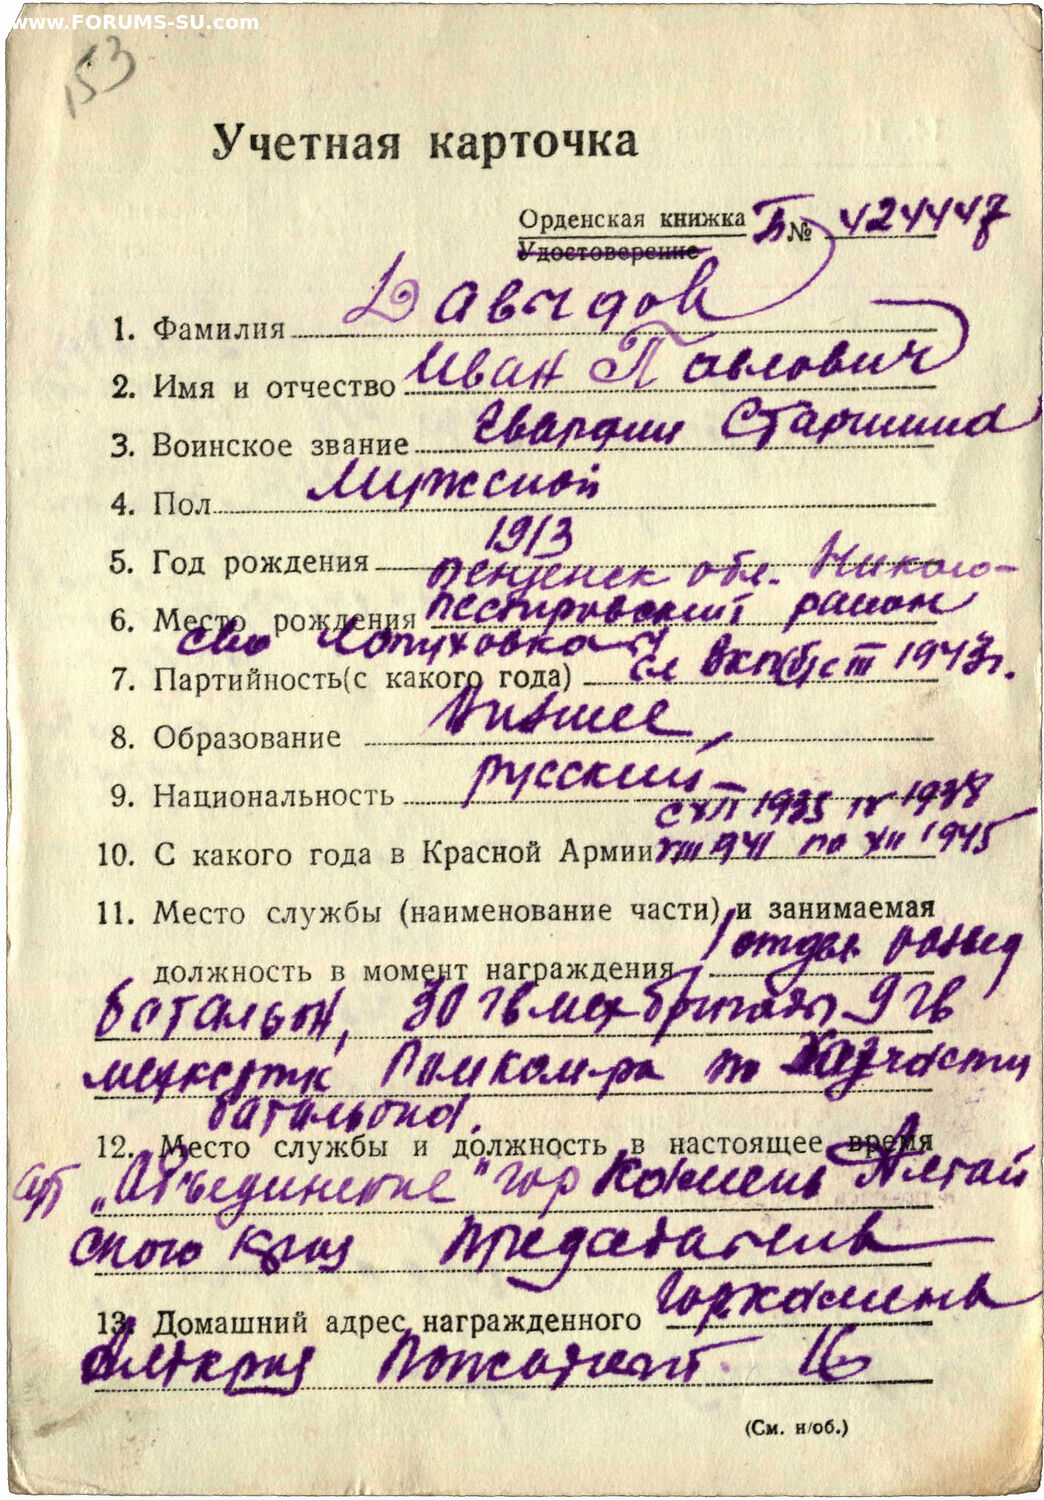 www.FORUMS-SU.com
153
Учетная карточка
Орденская книжка Б № 424447
Удостоверение
1. Фамилия Давыдов
2. Имя и отчество Иван Павлович
3. Воинское звание Гвардии Старшина
4. Пол Мужской
1913
5. Год рождения
Пензенск обл. Николо-
6. Место рождения пестировский район
село Лопуховка
7. Партийность(с какого года) чл ВКП(б) с III 1943г.
8. Образование Низшее,
9. Национальность русский
с XII 1935 IV 1938
10. С какого года в Красной Армии VIII 941 по XII 1945
11. Место службы (наименование части) и занимаемая
должность в момент награждения отдел развед
батальон, 30 гв мех бригады 9 гв
мехкорпус Помком-ра по хозчасти
батальона.
12. Место службы и должность в настоящее время
арт „Объединение" гор Камень Алтай
ского края председатель
13. Домашний адрес награжденного Гор камень
Алткрая 16
(См. н/об.)